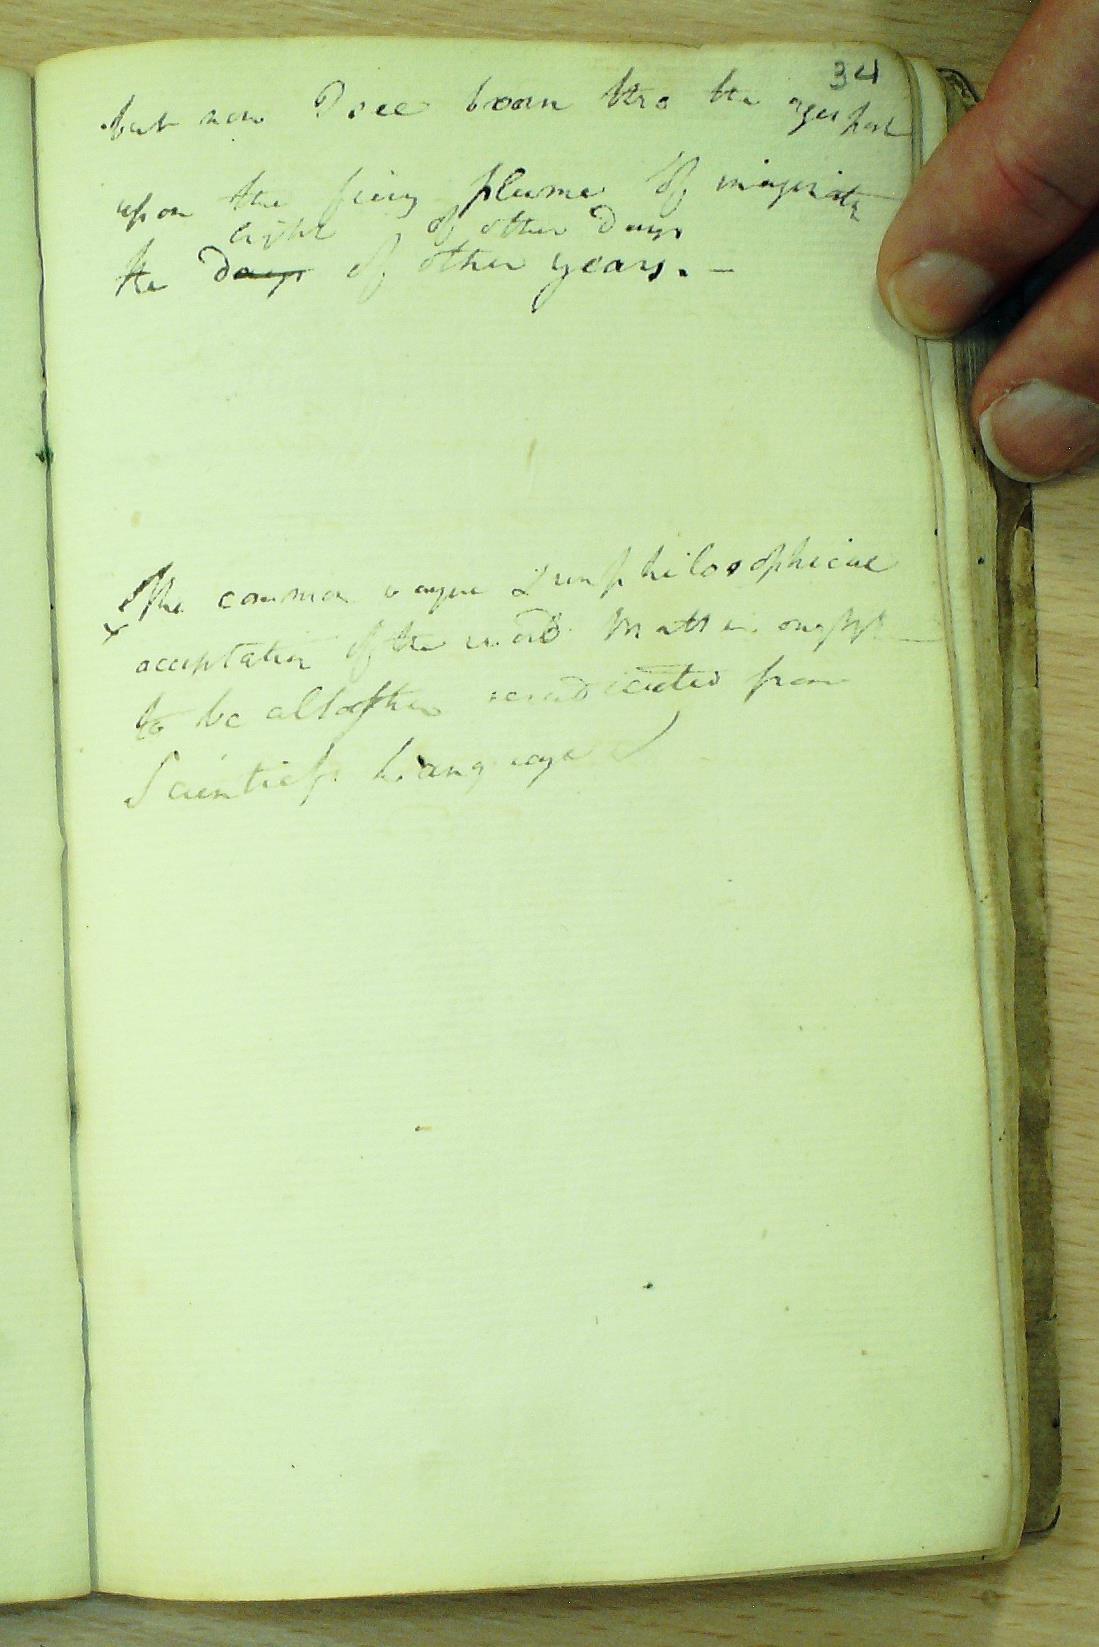 34
but now I see born thro the ages past
upon the fiery plume of
light of other days
the days of other years. —
The common vague & unphilosophical
acceptation of the word Matter ought
to be altogether eradicated from
Scientific Language